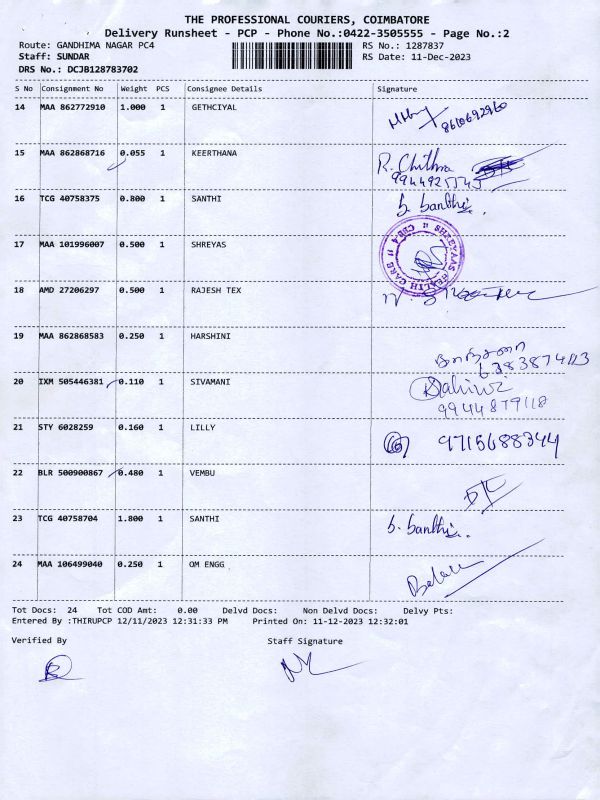 THE PROFESSIONAL COURIERS, COIMBATORE
Delivery Runsheet - PCP - Phone No.:0422-3505555 - Page No.:2
Route: GANDHIMA NAGAR PC4 RS No.: 1287837
Staff: SUNDAR RS Date: 11-Dec-2023
DRS No.: DCJB128783702
S No Consignment No Weight PCS Consignee Details Signature
14 MAA 862772910 1.000 1 GETHCIYAL
8610692960
15 MAA 862868716 0.055 1 KEERTHANA R. Chithra
9944925545
16 TCG 40758375 0.800 1 SANTHI
17 MAA 101996007 0.500 1 SHREYAS SHREYAAS HEALTH CARE CBE-4
18 AMD 27206297 0.500 1 RAJESH TEX
19 MAA 862868583 0.250 1 HARSHINI
20 IXM 505446381 0.110 1 SIVAMANI
9944879118
21 STY 6028259 0.160 1 LILLY 9715688344
22 BLR 500900867 0.480 1 VEMBU
23 TCG 40758704 1.800 1 SANTHI
24 MAA 106499040 0.250 1 OM ENGG
Tot Docs: 24 Tot COD Amt: 0.00 Delvd Docs: Non Delvd Docs: Delvy Pts:
Entered By :THIRUPCP 12/11/2023 12:31:33 PM Printed On: 11-12-2023 12:32:01
Verified By Staff Signature